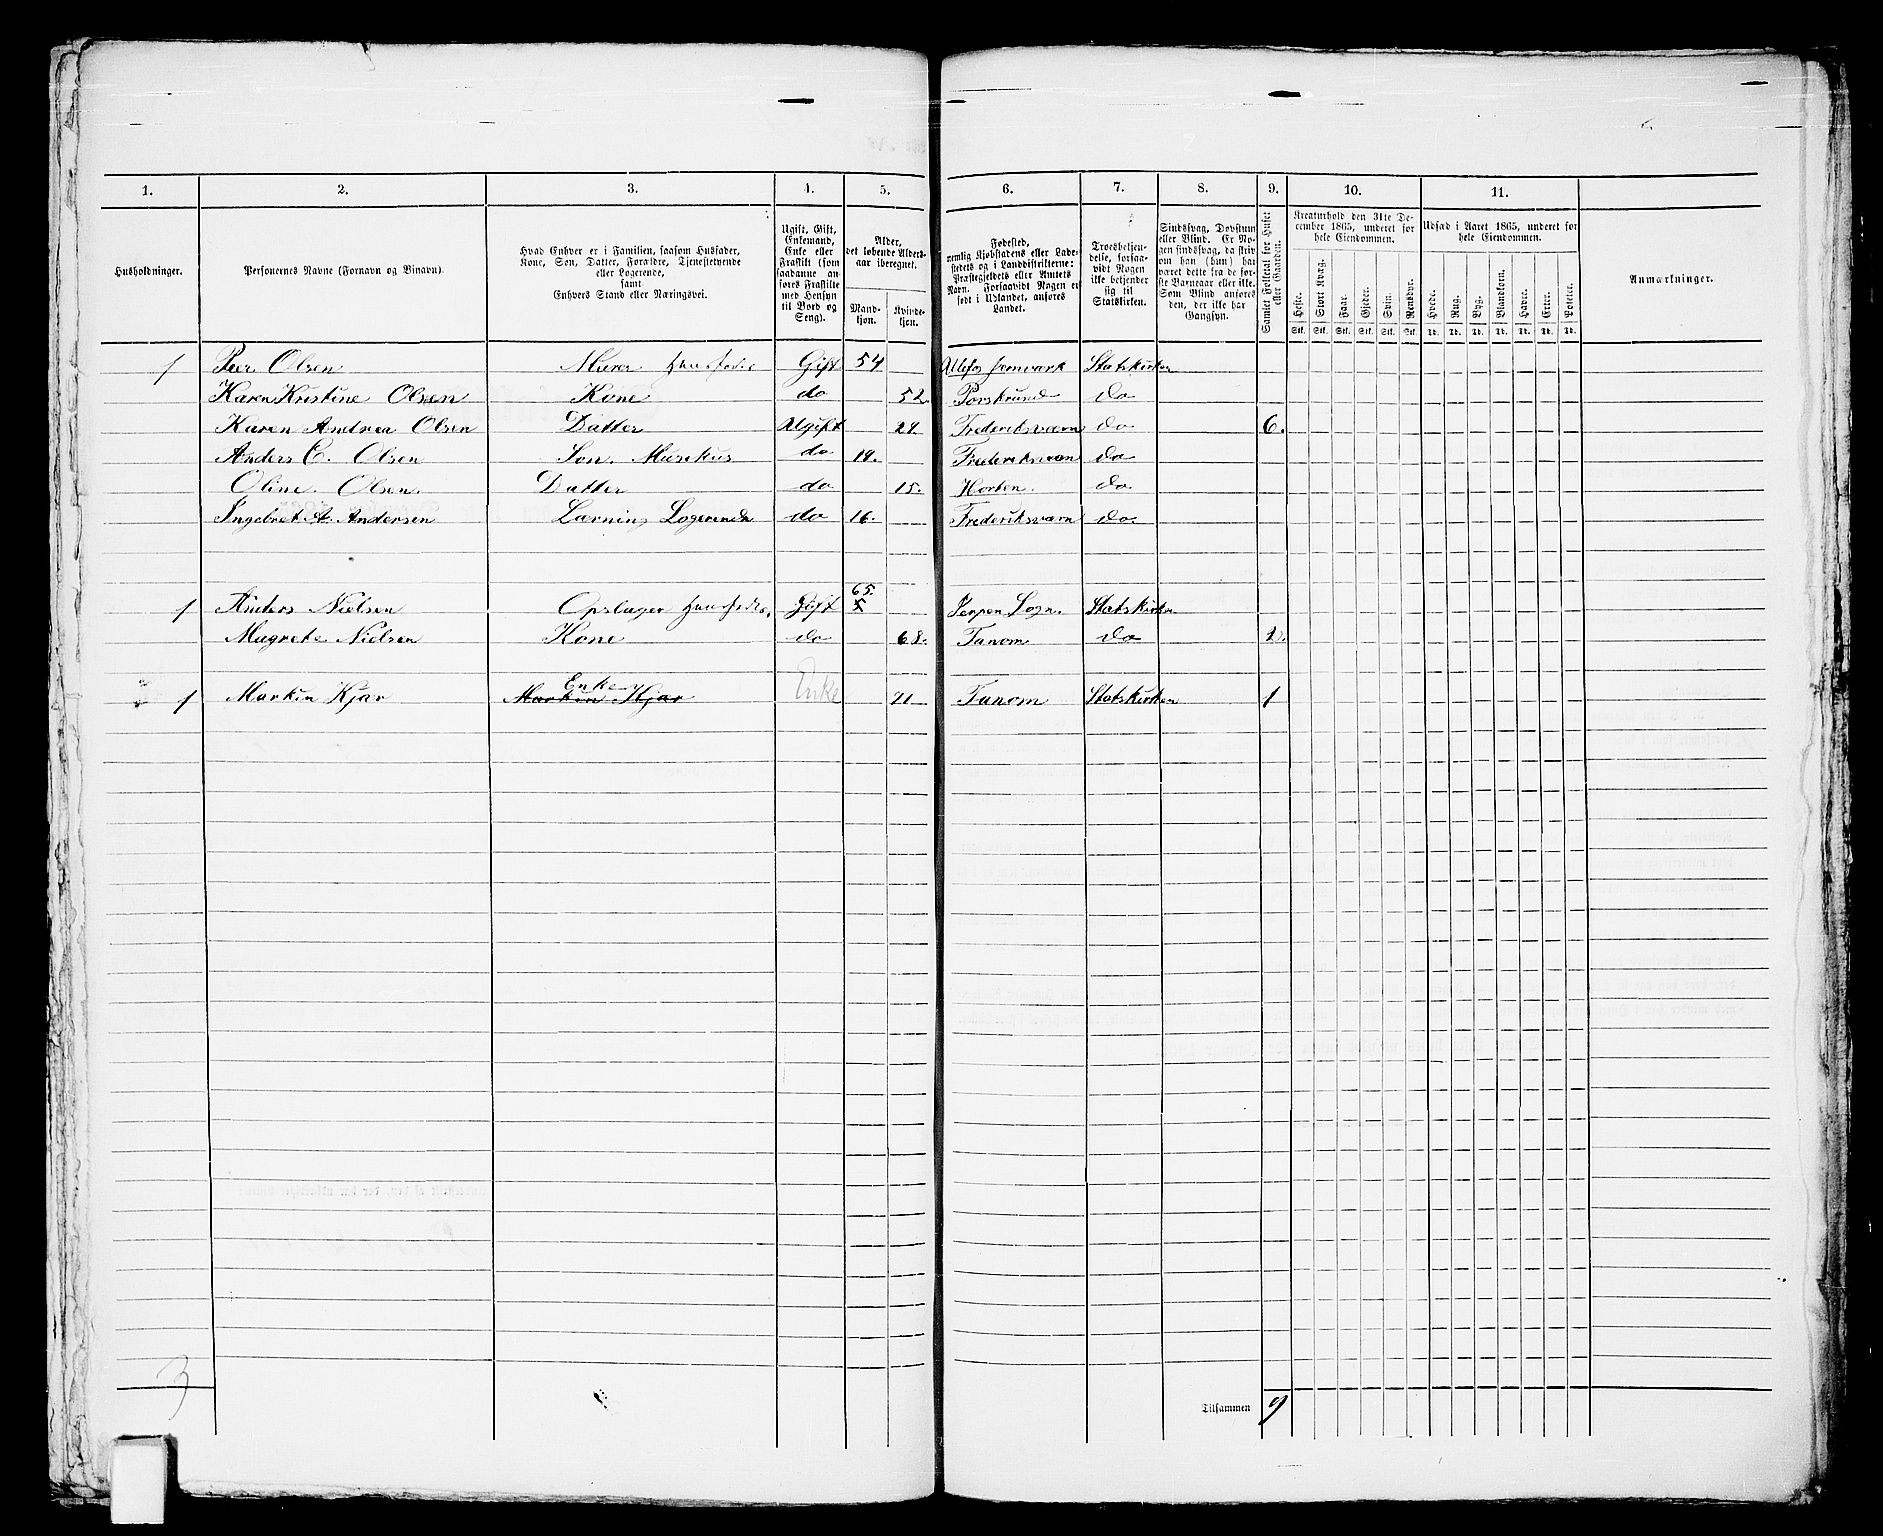 1. 2. 3. 4. 5. 6. 7. 8. 9. 10. 11.
Husholdninger.
Personernes Navne (Fornavn og Binavn).
Hvad Enhver er i Familien, saasom Husfader,
Kone, Søn, Datter, Forældre, Tjenestetyende
eller Logerende,
samt
Enhvers Stand eller Næringsvei.
Ugift, Gift,
Enkemand,
Enke eller
Fraskilt (som
saadanne an-
føres Fraskilte
med Hensyn
til Bord og
Seng).
Alder,
det løbende Alders-
aar iberegnet.
Mand-
kjøn.
Kvinde-
kjøn.
Fødested,
nemlig Kjøbstadens eller Lade-
stedets og i Landdistrikterne:
Præstegjeldets eller Amtets
Navn. Forsaavidt Nogen er
født i Udlandet, anføres
Landet.
Troesbekjen-
delse, forsaa-
vidt Nogen
ikke bekjender
sig til
Statskirken.
Sindssvag, Døvstum
eller Blind. Er No-
gen sindssvag, da skriv
om han (hun) har
været dette fra de før-
ste Barneaar eller ikke.
Som Blind anføres
den, der ikke har
Gangsyn.
Samlet Folketal for Huset
eller Gaarden.
Kreaturhold den 31te De-
cember 1865, underet for
hele Eiendommen.
Heste. Stort Kvæg. Faar. Gjeder. Svin. Rensdyr.
Stk. Stk. Stk. Stk. Stk. Stk.
Udsæd i Aaret 1865, underet for
hele Eiendommen.
Hvede. Rug. Byg. Blandkorn. Havre. Erter. Poteter.
Td. Td. Td. Td. Td. Td. Td.
Anmærkninger.
1 Peer Olsen Murer Huusfader Gift 54 Ulefos Jernværk Statskirken
Karen Kristine Olsen Kone do 52 Porskrund do
Karen Andrea Olsen Datter Ugift 24. Frederiksværn do 6.
Anders C. Olsen Søn. Musikus do 19. Frederiksværn do
Oline. Olsen. Datter do 15. Horten. do
Ingebret A. Andersen Lærning Logerende do 16. Frederiksværn do.
65.
1 Anders Nielsen Opslager Huusfader Gift Jerpen Sogn. Statskirken
Magrete Nielsen Kone do 68. Tanom do 2.
Enke
1 Markin Kjær Markin Kjær Enke 71 Tanom Statskirken 1
3
Tilsammen 9